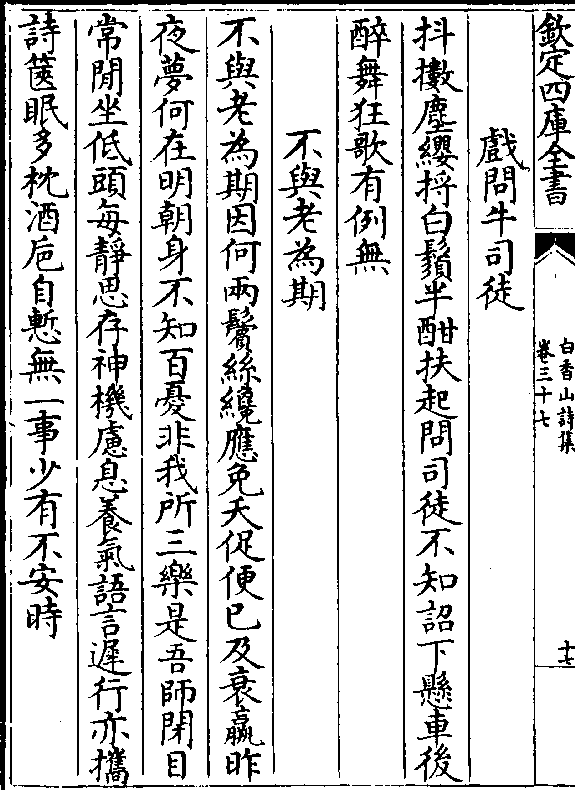 欽定四庫全書
白香山詩集
卷三十七
十七
戲問牛司徒
抖擻塵纓捋白鬚半酣扶起問司徒不知詔下懸車後
醉舞狂歌有例無
不與老為期
不與老為期因何兩鬢絲纔應免夭促便已及衰羸昨
夜夢何在明朝身不知百憂非我所三樂是吾師閉目
常閒坐低頭每靜思存神機慮息養氣語言遲行亦攜
詩篋眠多枕酒巵自慙無一事少有不安時